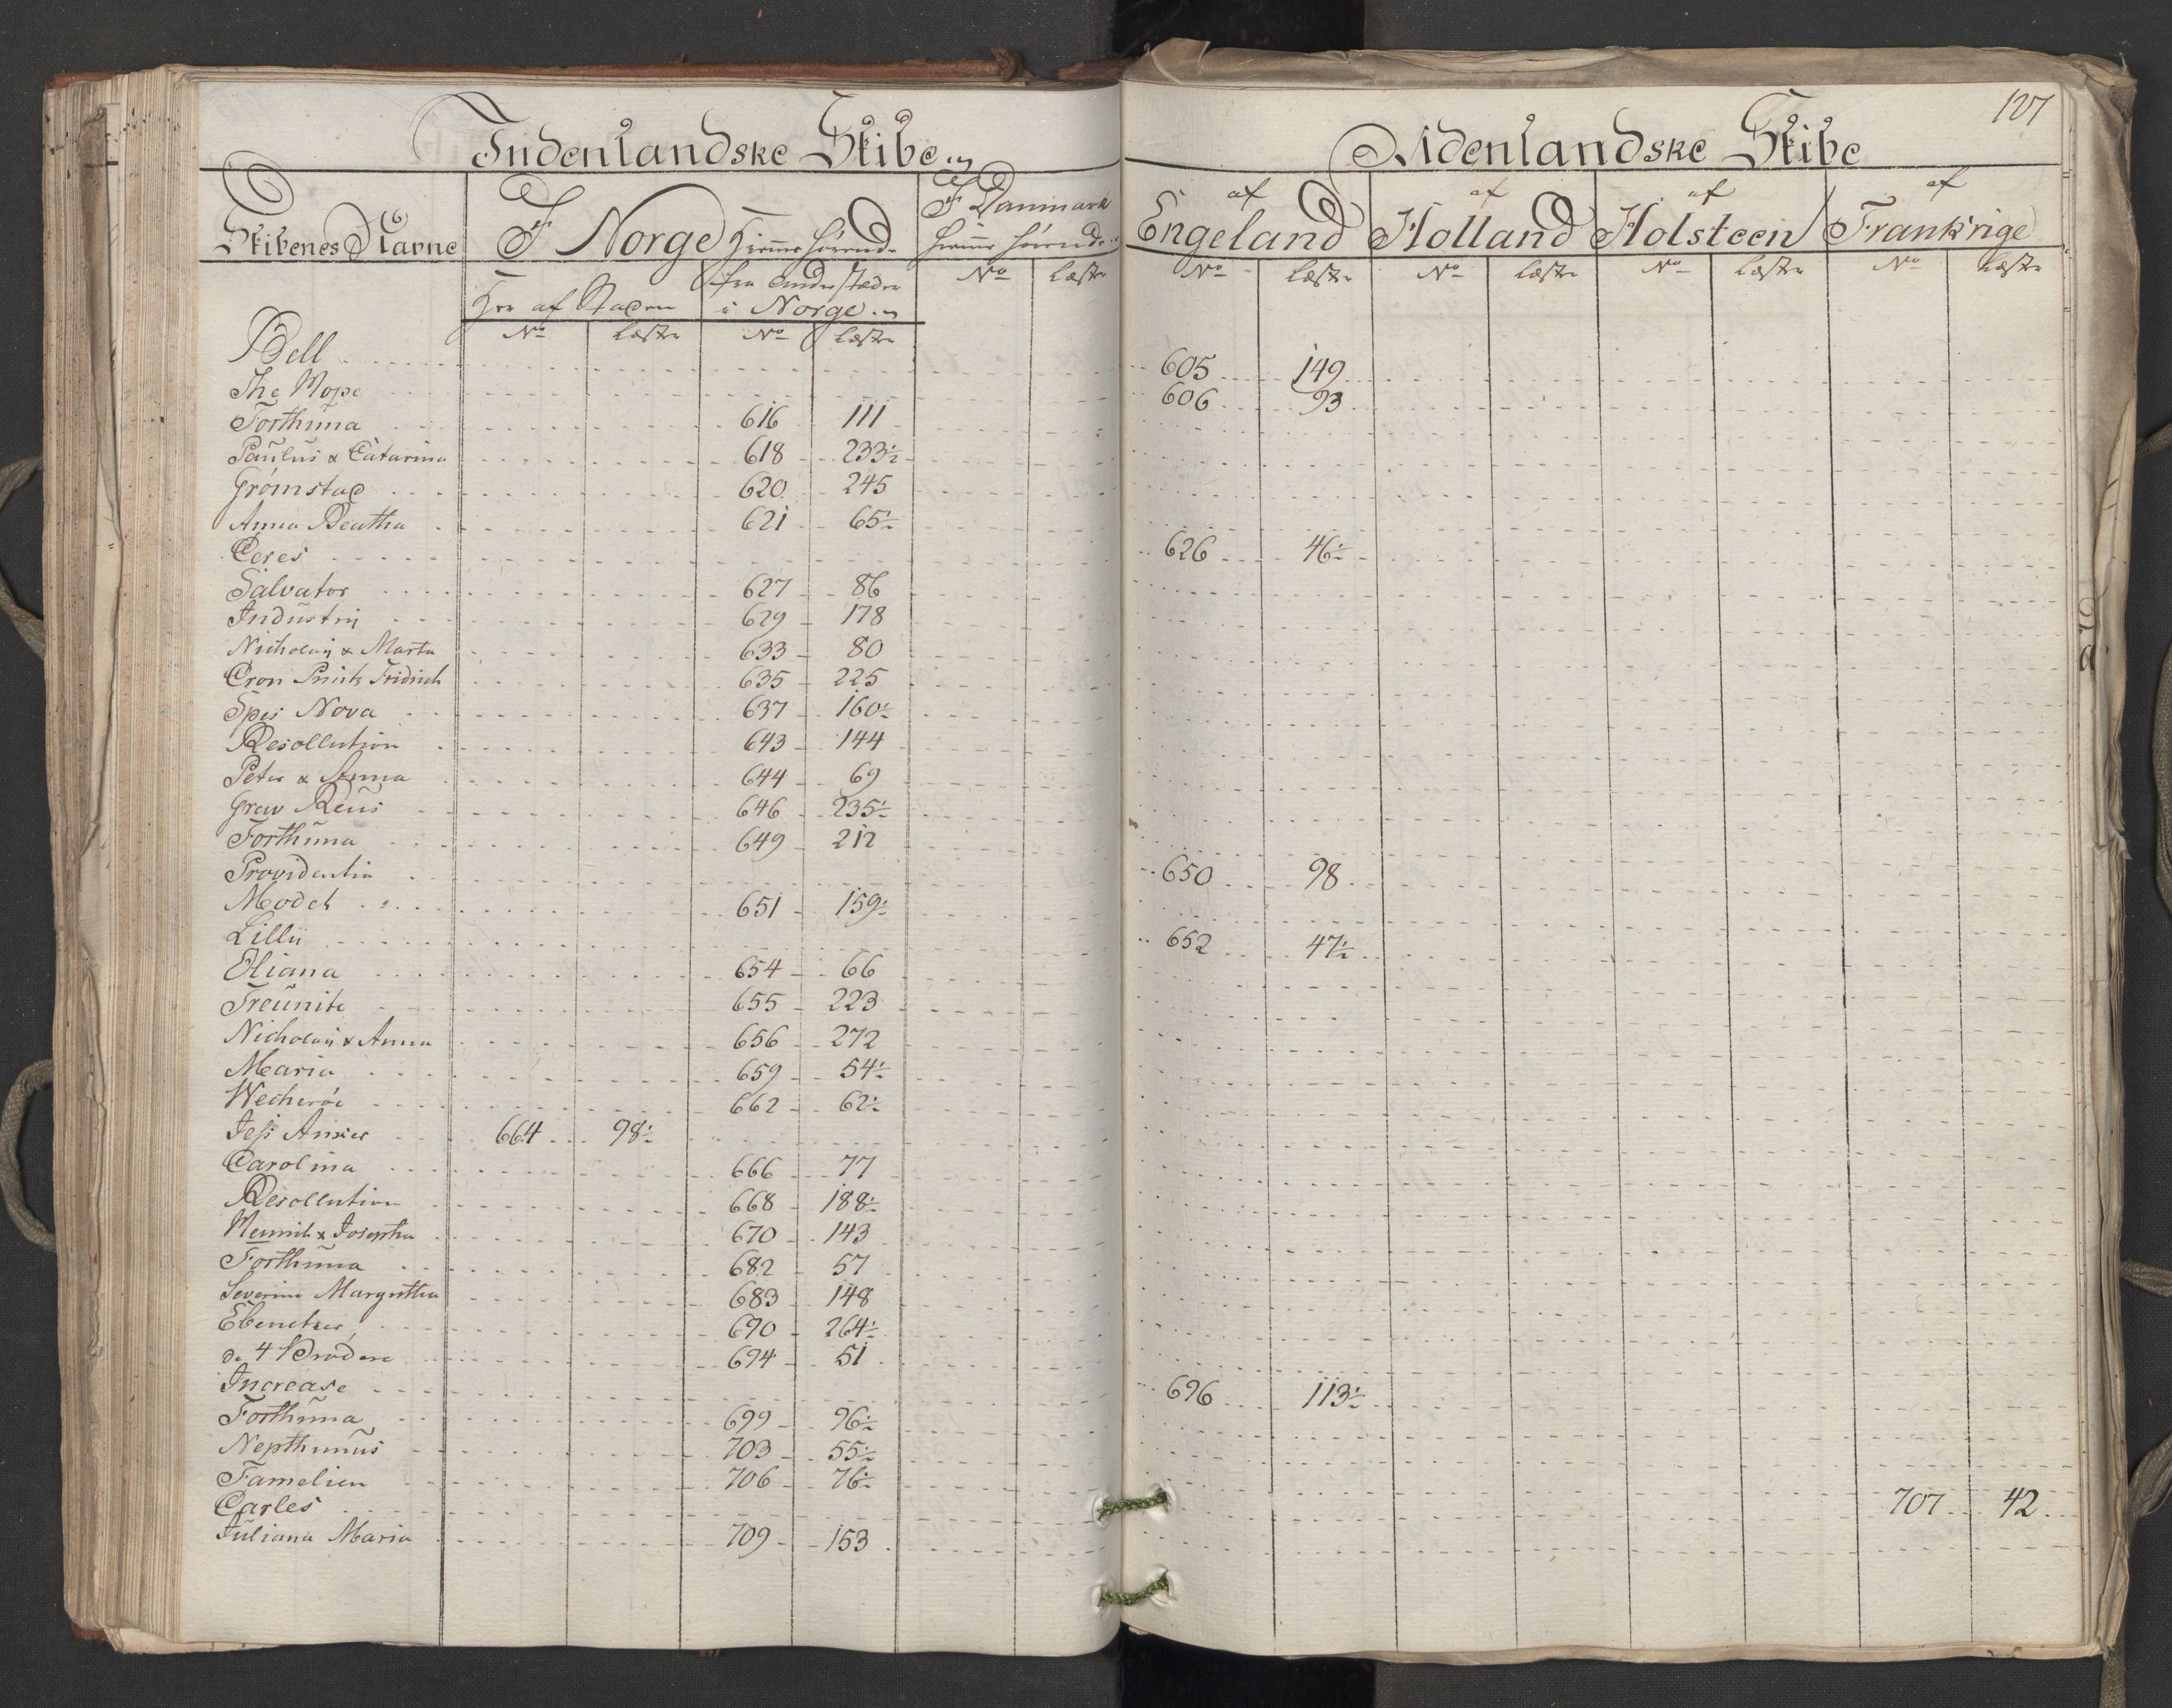 127
Indenlandske Skibe
Udenlandske Skibe
Skibenes Navne
I Norge hiemme hørende
I Danmark hiemme hørende
af Engeland
af Holland
af Holsteen
af Frankrige
Her af Staden
fra andre stæder i Norge
No Læster No Læster No Læster No Læster No Læster No Læster No Læster
Bell 605 149
The Hope 606 93
Forthuna 616 111
Paulus & Catarina 618 233½
Grømstad 620 245
Anna Beatha 621 65½
Ceres 626 46½
Salvator 627 86
Industrij 629 178
Nicholaij & Marta 633 80
Cron Prints Fridrich 635 225
Spes Nova 637 160½
Resollution 643 144
Peter & Anna 644 69
Grev Reus 646 235½
Forthuna 649 212
Providentia 650 98
Modet 651 159½
Lillii 652 47½
Eliana 654 66
Treunite 655 223
Nicholaij & Anna 656 272
Maria 659 54½
Wecherøe 662 62½
Jess Anker 664 98½
Carolina 666 77
Resollution 668 188½
Henrich & Josepha 670 143
Forthuna 682 57
Severine Margretha 683 148
Ebenetzer 690 264½
de 4 Brødere 694 51
Increase 696 113½
Forthuna 699 96½
Nepthunus 703 55½
Famelien 706 76½
Carles 707 42
Juliana Maria 709 153